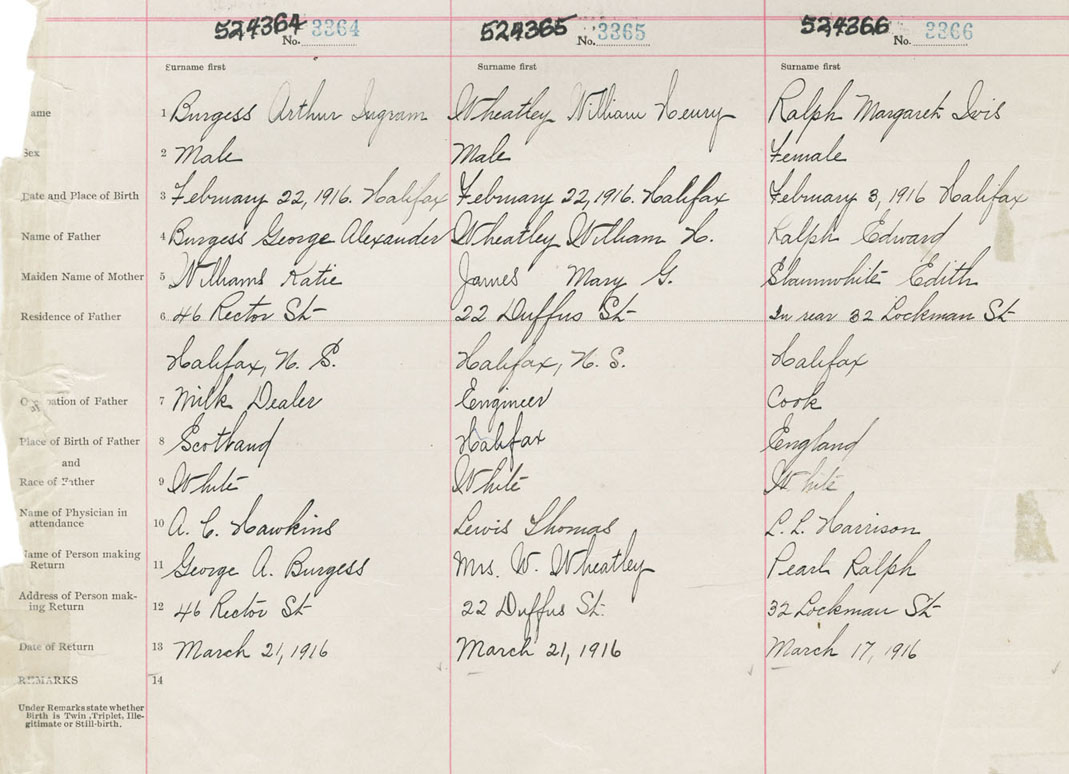 524364 No. 3364 524365 No. 3365 524366 No. 3366
Surname first Surname first Surname first
ame 1 Burgess Arthur Ingram Wheatley William Henry Ralph Margaret Ivis
Sex 2 Male Male Female
Date and Place of Birth 3 February 22, 1916. Halifax February 22, 1916. Halifax February 3, 1916 Halifax
Name of Father 4 Burgess George Alexander Wheatley William H. Ralph Edward
Maiden Name of Mother 5 Williams Katie James Mary G. Slaunwhite Edith
Residence of Father 6 46 Rector St 22 Duffus St In rear 32 Lockman St
Halifax, N. S. Halifax, N. S. Halifax
Occupation of Father 7 Milk Dealer Engineer Cook
Place of Birth of Father 8 Scotland Halifax England
and
Race of Father 9 White White White
Name of Physician in
attendance 10 A. C. Hawkins Lewis Thomas L. L. Harrison
Name of Person making
Return 11 George A. Burgess Mrs. W. Wheatley Pearl Ralph
Address of Person mak-
ing Return 12 46 Rector St 22 Duffus St. 32 Lockman St
Date of Return 13 March 21, 1916 March 21, 1916 March 17, 1916
REMARKS 14
Under Remarks state whether
Birth is Twin, Triplet, Ille-
gitimate or Still-birth.